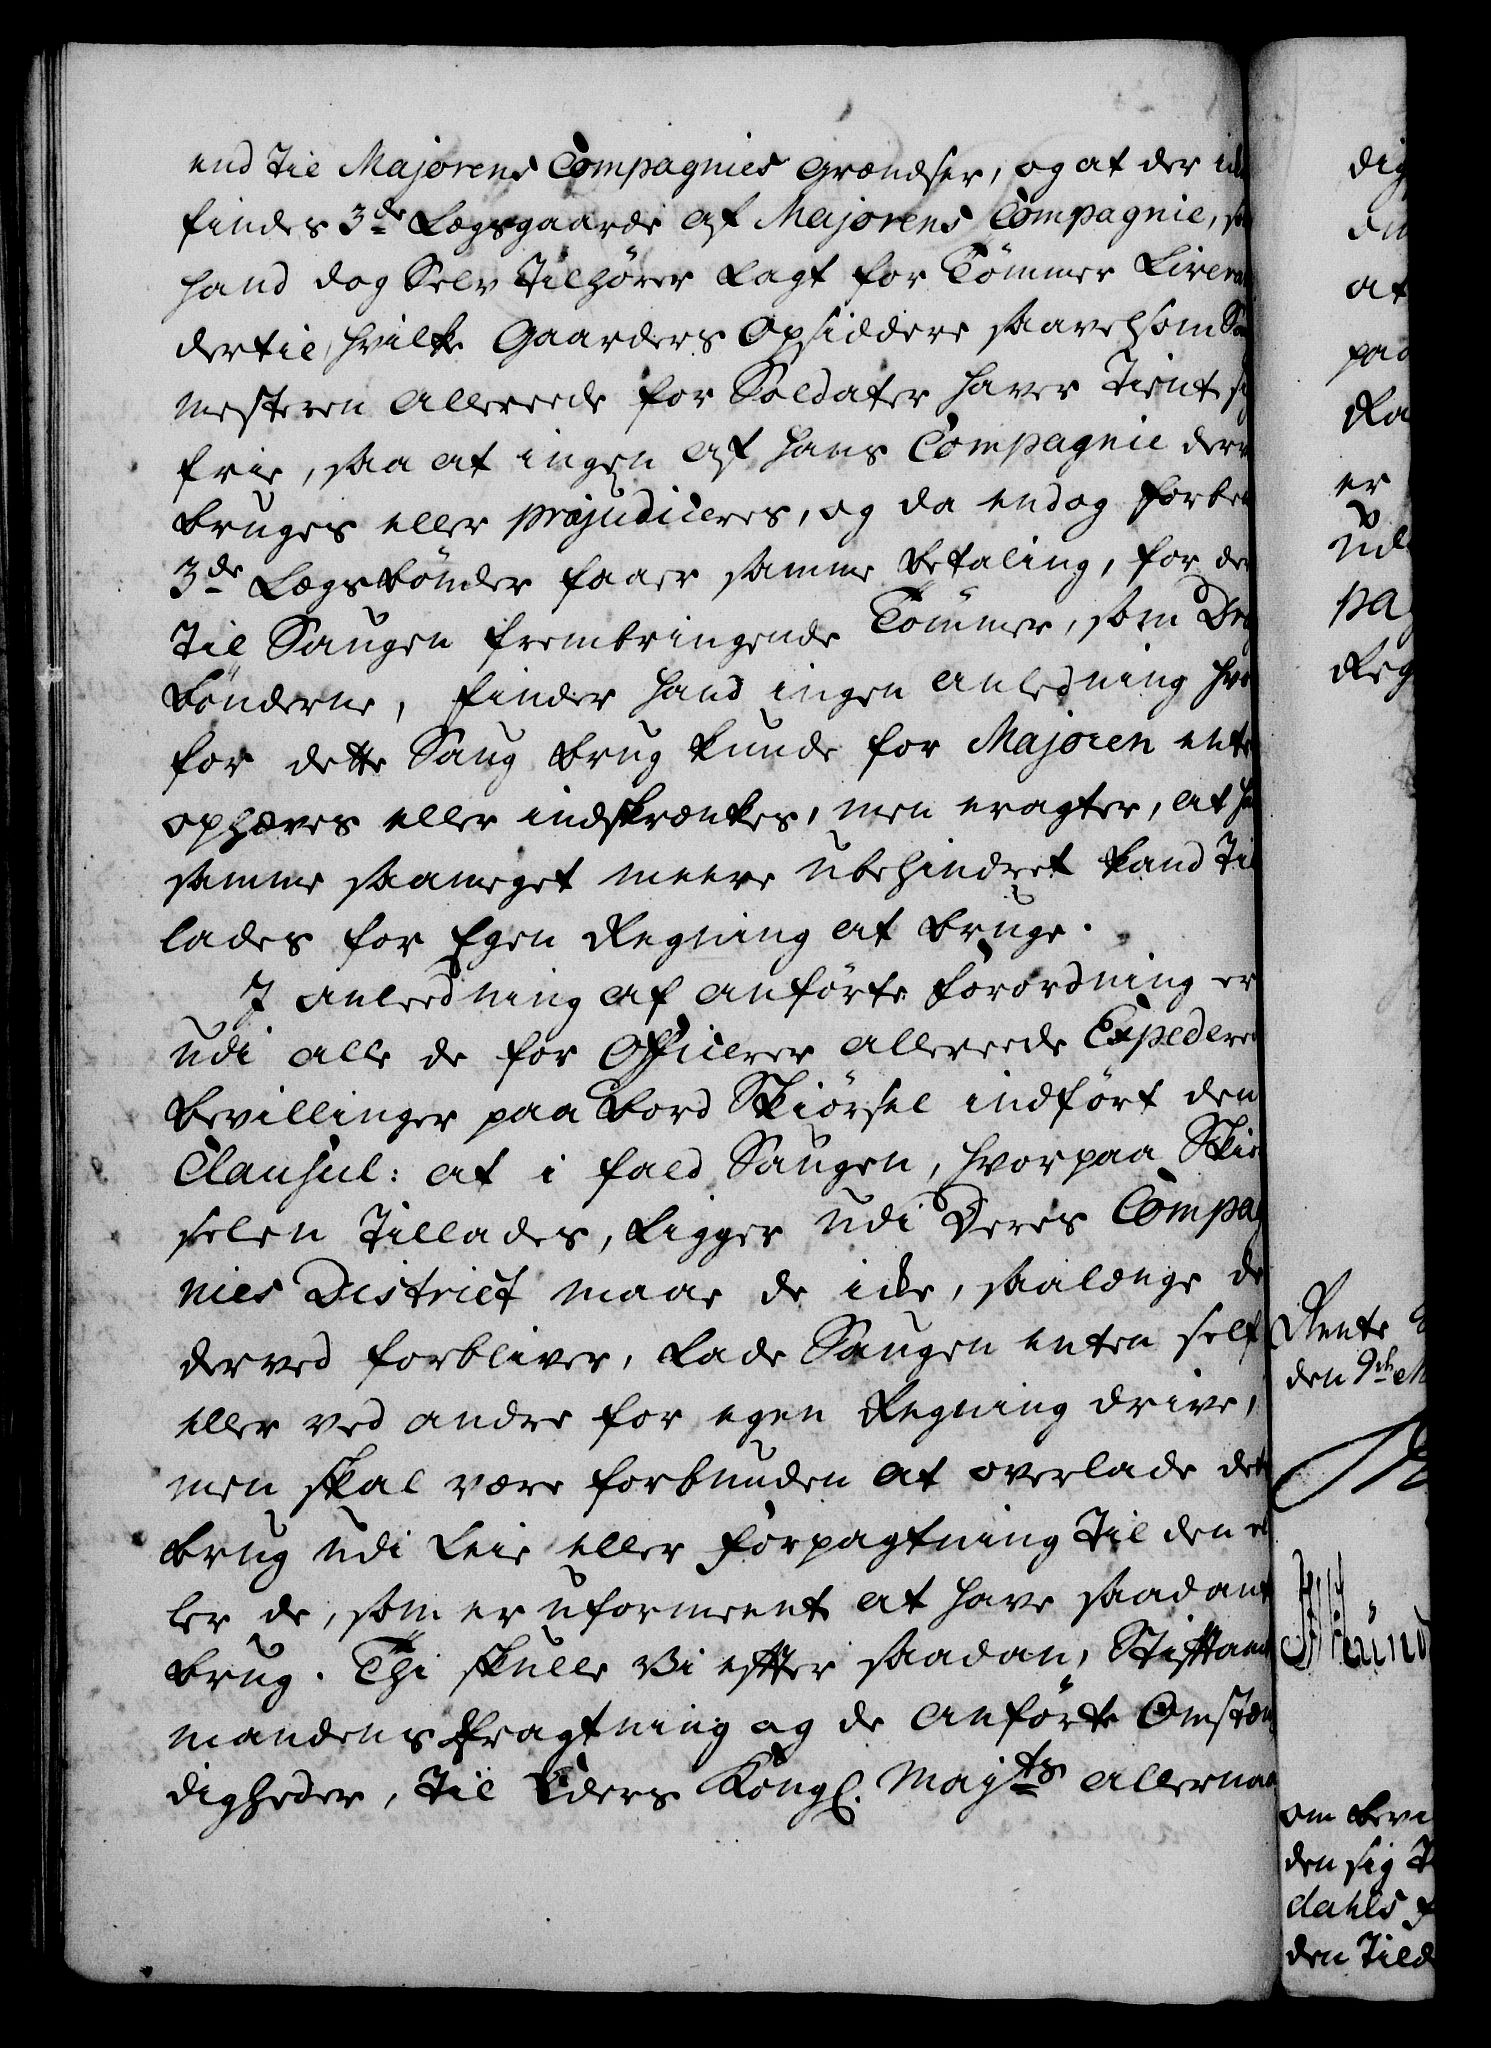 end til Majorens Compagnies Grændser, og at der ik
findes 3de Lægsgaarde af Majorens Compagnie, so
hand dog Selv tilhører lagt for Tømmer Livera
dertil, hvilke Gaarders Opsiddere saavelsom
mesteren allereede for Soldater haver tient
frie, saa at ingen af hans Compagnie derv
bruges eller præjudiceres, og da endog forbe
3de Lægsbønder faaer samme betaling, for de
til Saugen frembringende Tømmer, som
bønderne, finder hand ingen anledning hvo
for dette Saug brug kunde for Majoren ente
ophæves eller indskrænkes, men eragter, at h
samme saameget meere ubehindret kand til
lades for Egen Regning at bruge.
I anleedning af anførte Forordning er
udi alle de for Officerer allereede Expedere
bevillinger paa Bord Skiørsel indført den
Clausul: at i fald Saugen, hvorpaa Skiø
selen tillades, ligger udi Deres Compag
nies District maae de icke, saalænge de
derved forbliver, lade Saugen enten self
eller ved andre for egen Regning drive,
men skal være forbunden at overlade det
brug udi Leie eller Forpagtning til den el
ler de, som er uformeent at have saadant
brug. Thi skulle Vi efter saadan, Stiftamt
mandens Eragtning og de anførte Omstæn
digheder, til Eders Kongl. Mayts allernaa
dig
at
paa
Ra
er
ud
pag
Reg
Rente
den 9de
om bevi
den sig
dahls
den tild